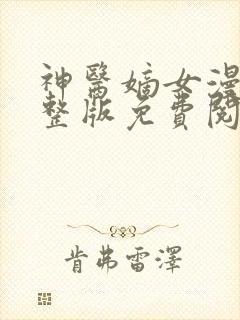 神醫嫡女漫
整版免費閱
肯弗雷澤